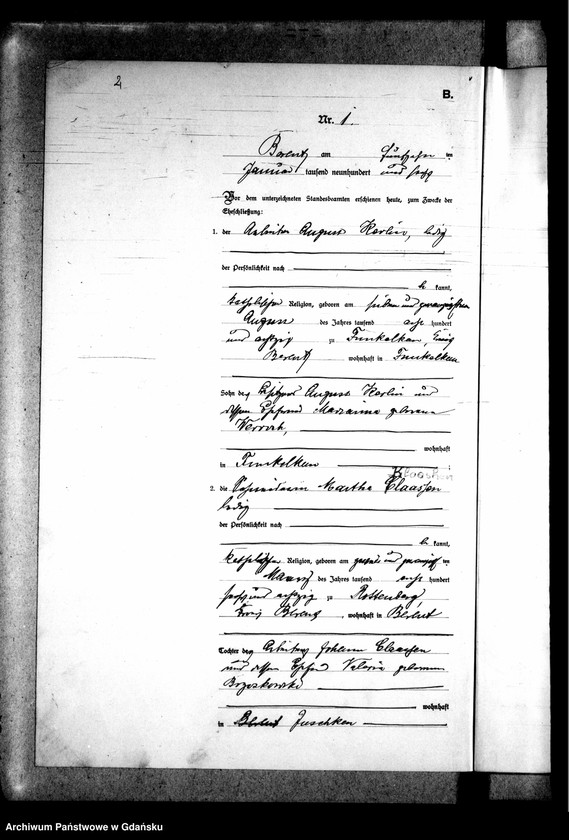 2
B.
Nr. 1.
Berent am fünfzehn ten
Januar tausend neunhundert und sechs
Vor dem unterzeichneten Standesbeamten erschienen heute, zum Zwecke der
Eheschließung:
1. der Arbeiter August Kerlin, ledig
der Persönlichkeit nach
be kannt,
katholischer Religion, geboren am sieben und zwanzigsten
August des Jahres tausend acht hundert
und achtzig zu Funkelkau, Kreis
Berent wohnhaft in Funkelkau
Sohn des Besitzers August Kerlin und
dessen Ehefrau Marianna geborene
wohnhaft
in Funkelkau
Klaassen
2. die Martha Claassen
ledig
der Persönlichkeit nach
be kannt,
katholischer Religion, geboren am ten
März des Jahres tausend acht hundert
sechs und achtzig zu Rottenberg
Kreis Berent, wohnhaft in Berent
Tochter des Arbeiters Johann Claassen
und dessen Ehefrau Valeria geborenen
Brzeskowski
wohnhaft
in Juschken
Archiwum Państwowe w Gdańsku